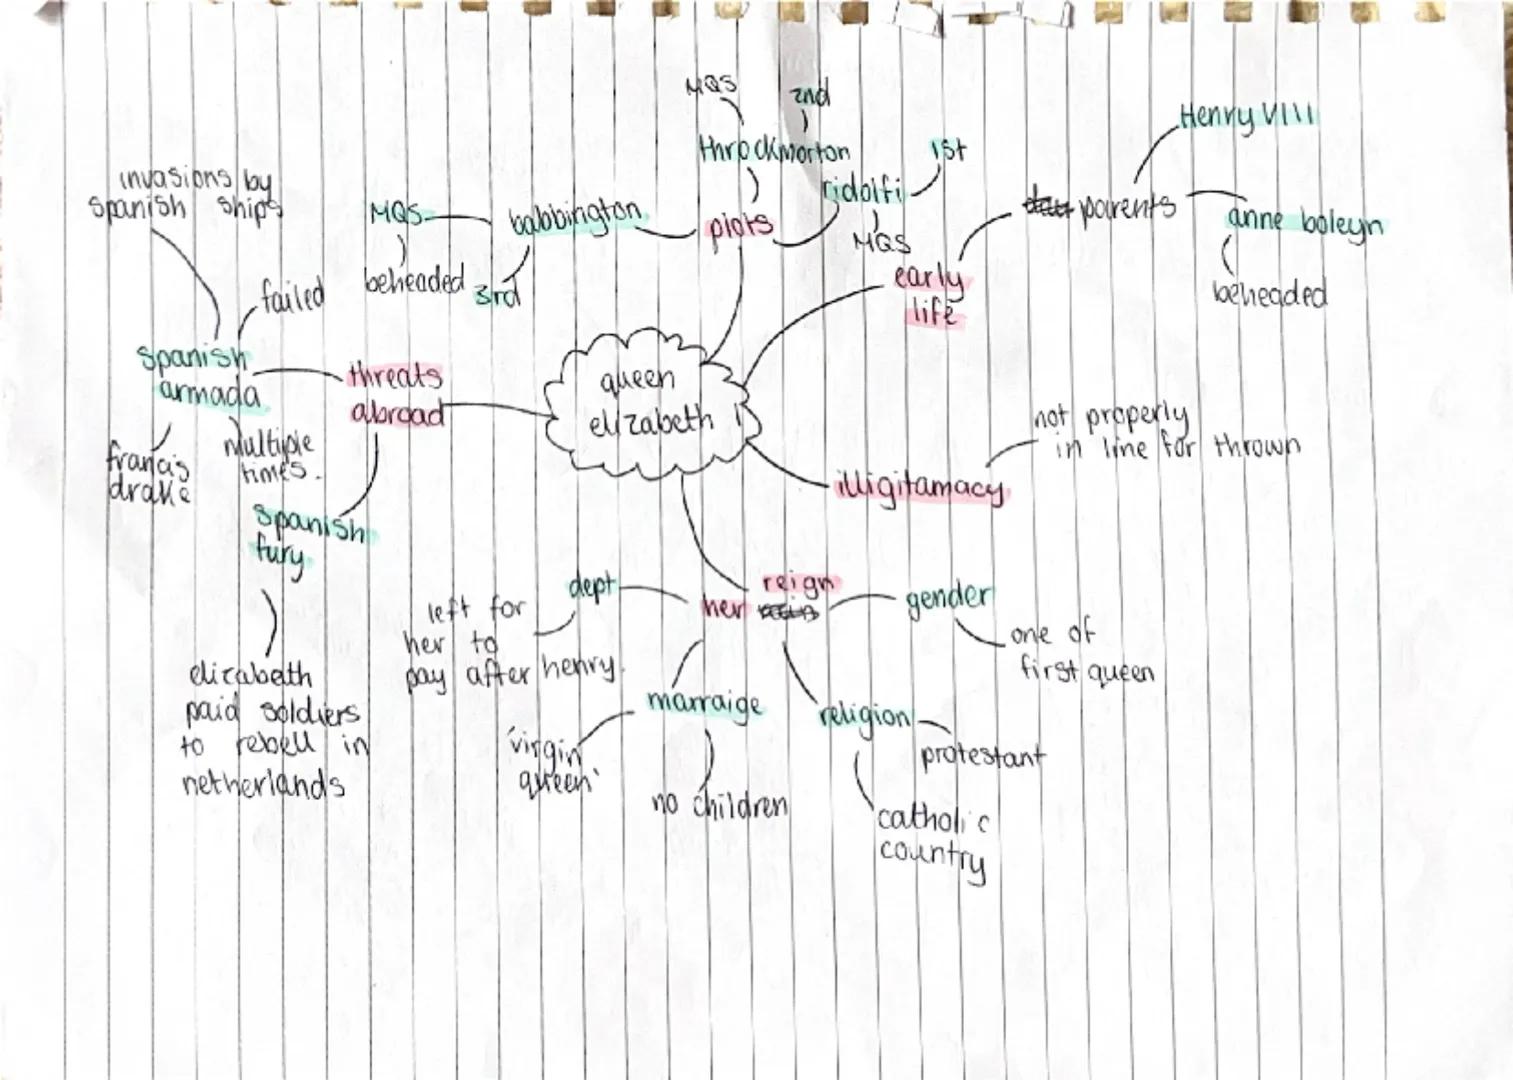 queen
elizabeth 1
plots
throckmorton
MQS
2nd
ridolfi
1st
MQS
babbington
MQS
beheaded
3rd
early
life
parents
Henry VIII
anne boleyn
beheaded
illigitamacy
not properly
in line for thrown
her reign
gender
one of
first queen
religion
protestant
catholic
country
marraige
'virgin
queen'
no children
dept
left for
her to
pay after henry.
threats
abroad
spanish
armada
invasions by
spanish ships
failed
francis
drake
multiple
times.
spanish
fury
elizabeth
paid soldiers
to rebell in
netherlands